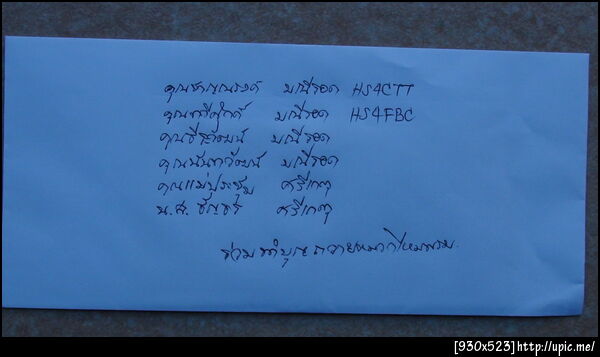 คุณชาญณรงค์ มณีรอด HS4CTT
คุณทวีศักดิ์ มณีรอด HS4FBC
คุณธีรวัฒน์ มณีรอด
คุณนันทวัฒน์ มณีรอด
คุณแม่ประชุม ศรีเกตุ
น.ส. ศรีเกตุ
ร่วมทำบุญถวาย
[930x523]http://upic.me/